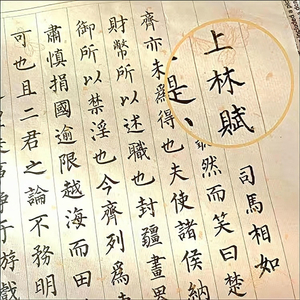 上林賦
司馬相如
是
然而笑曰楚
齊亦未爲得也夫使諸侯納
財幣所以述職也封疆畫界
御所以禁淫也今齊列爲
肅慎捐國逾限越海而田
可也且二君之論不務明
事爭于游戲